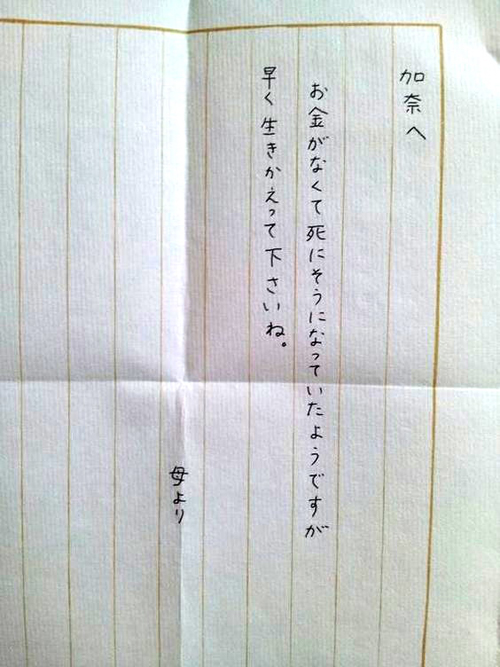 加奈へ
お金がなくて死にそうになっていたようですが
早く生きかえって下さいね。
母より